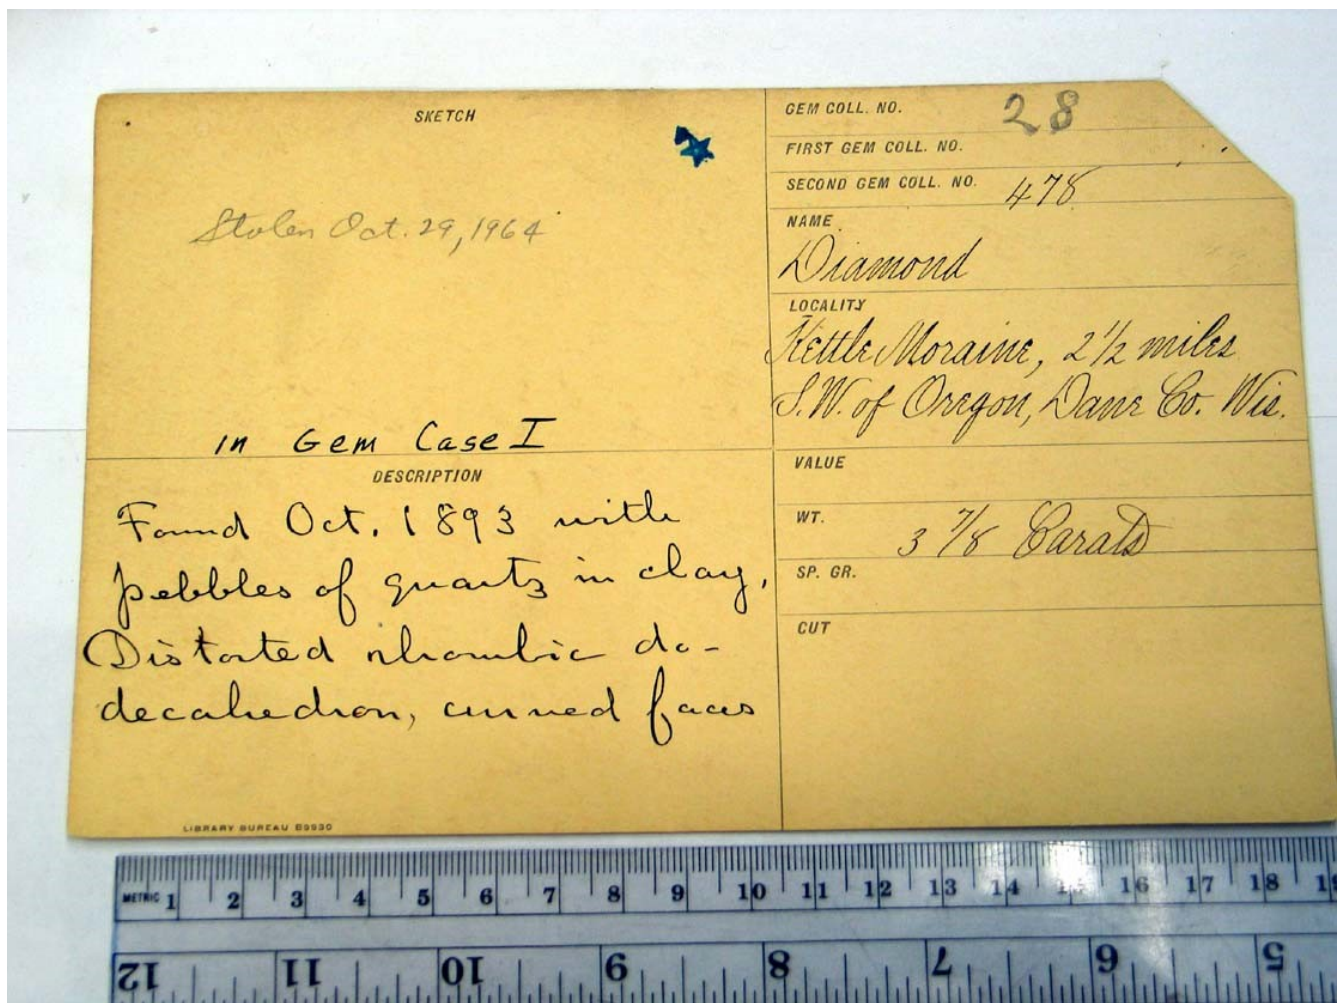 SKETCH
Stolen Oct. 29, 1964
in Gem Case I
DESCRIPTION
Found Oct. 1893 with
pebbles of quartz in clay,
Distorted rhombic do-
decahedron, curved faces
LIBRARY BUREAU E9930
GEM COLL. NO. 28
FIRST GEM COLL. NO.
SECOND GEM COLL. NO. 478
NAME
Diamond
LOCALITY
Kettle Moraine, 2 1/2 miles
S.W. of Oregon, Dane Co. Wis.
VALUE
WT. 3 7/8 Carats
SP. GR.
CUT
METRIC 1 2 3 4 5 6 7 8 9 10 11 12 13 14 15 16 17 18 19
12 11 10 9 8 7 6 5